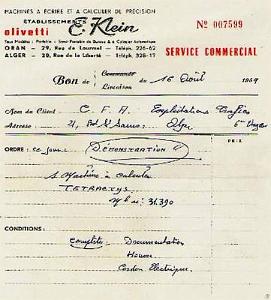 MACHINES A ECRIRE ET A CALCULER DE PRECISION
ETABLISSEMENTS
olivetti E. Klein
Nº 007599
ORAN - 29, Rue de Lourmel - Téléph. 226-62
ALGER - 38, Rue de la Liberté - Téléph. 328-17
SERVICE COMMERCIAL
Bon de Commande
Livraison du 16 Août 1959
Nom du Client : C. F. A.
Adresse : 21, Alger
PRIX
ORDRE : ce jour : DÉMONSTRATION
1 Machine à calculer
TETRACTYS
Nº 31.390
CONDITIONS :
complète : Documentation
Housse
Cordon Electrique.